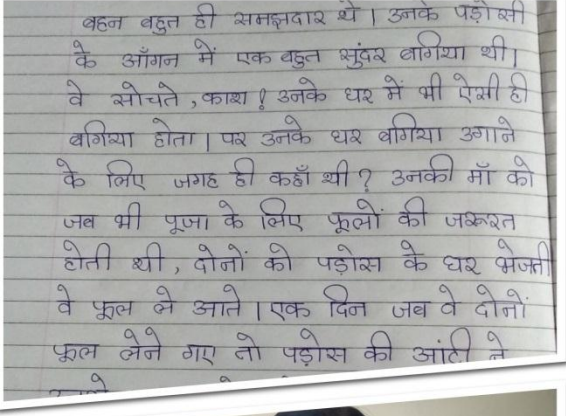 बहन बहुत ही समझदार थे। उनके पड़ोसी
के आँगन में एक बहुत सुंदर बगिया थी।
वे सोचते, काश! उनके घर में भी ऐसी ही
बगिया होता। पर उनके घर बगिया उगाने
के लिए जगह ही कहाँ थी? उनकी माँ को
जब भी पूजा के लिए फूलों की जरूरत
होती थी, दोनों को पड़ोस के घर भेजती
वे फूल ले आते। एक दिन जब वे दोनों
फूल लेने गए तो पड़ोस की आंटी ने